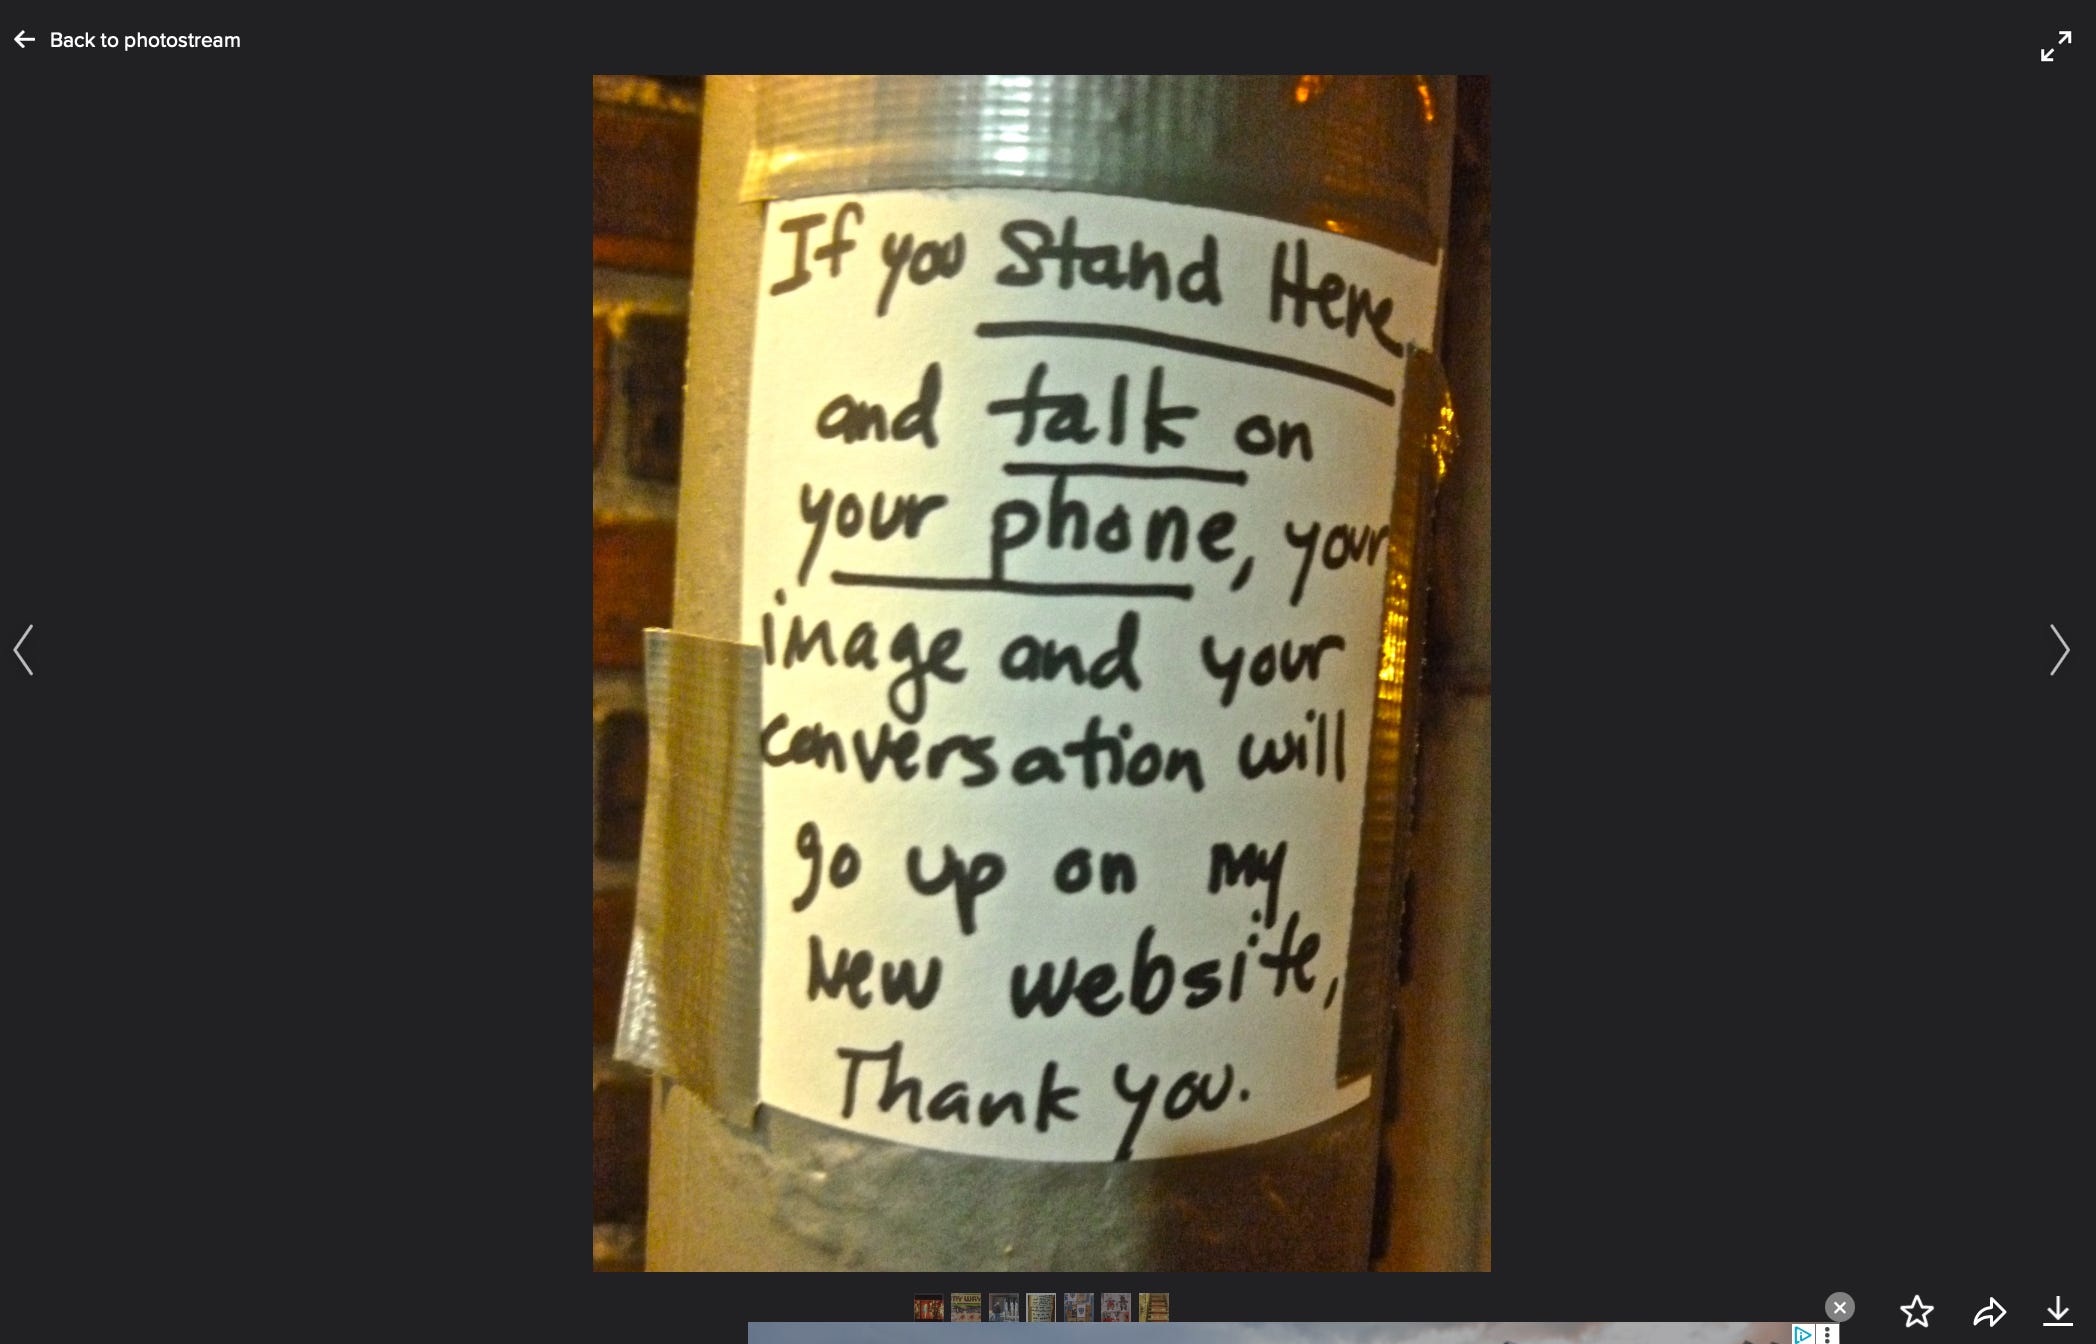 Back to photostream
If you Stand Here
and talk on
your phone, your
image and your
conversation will
go up on my
New website,
Thank you.